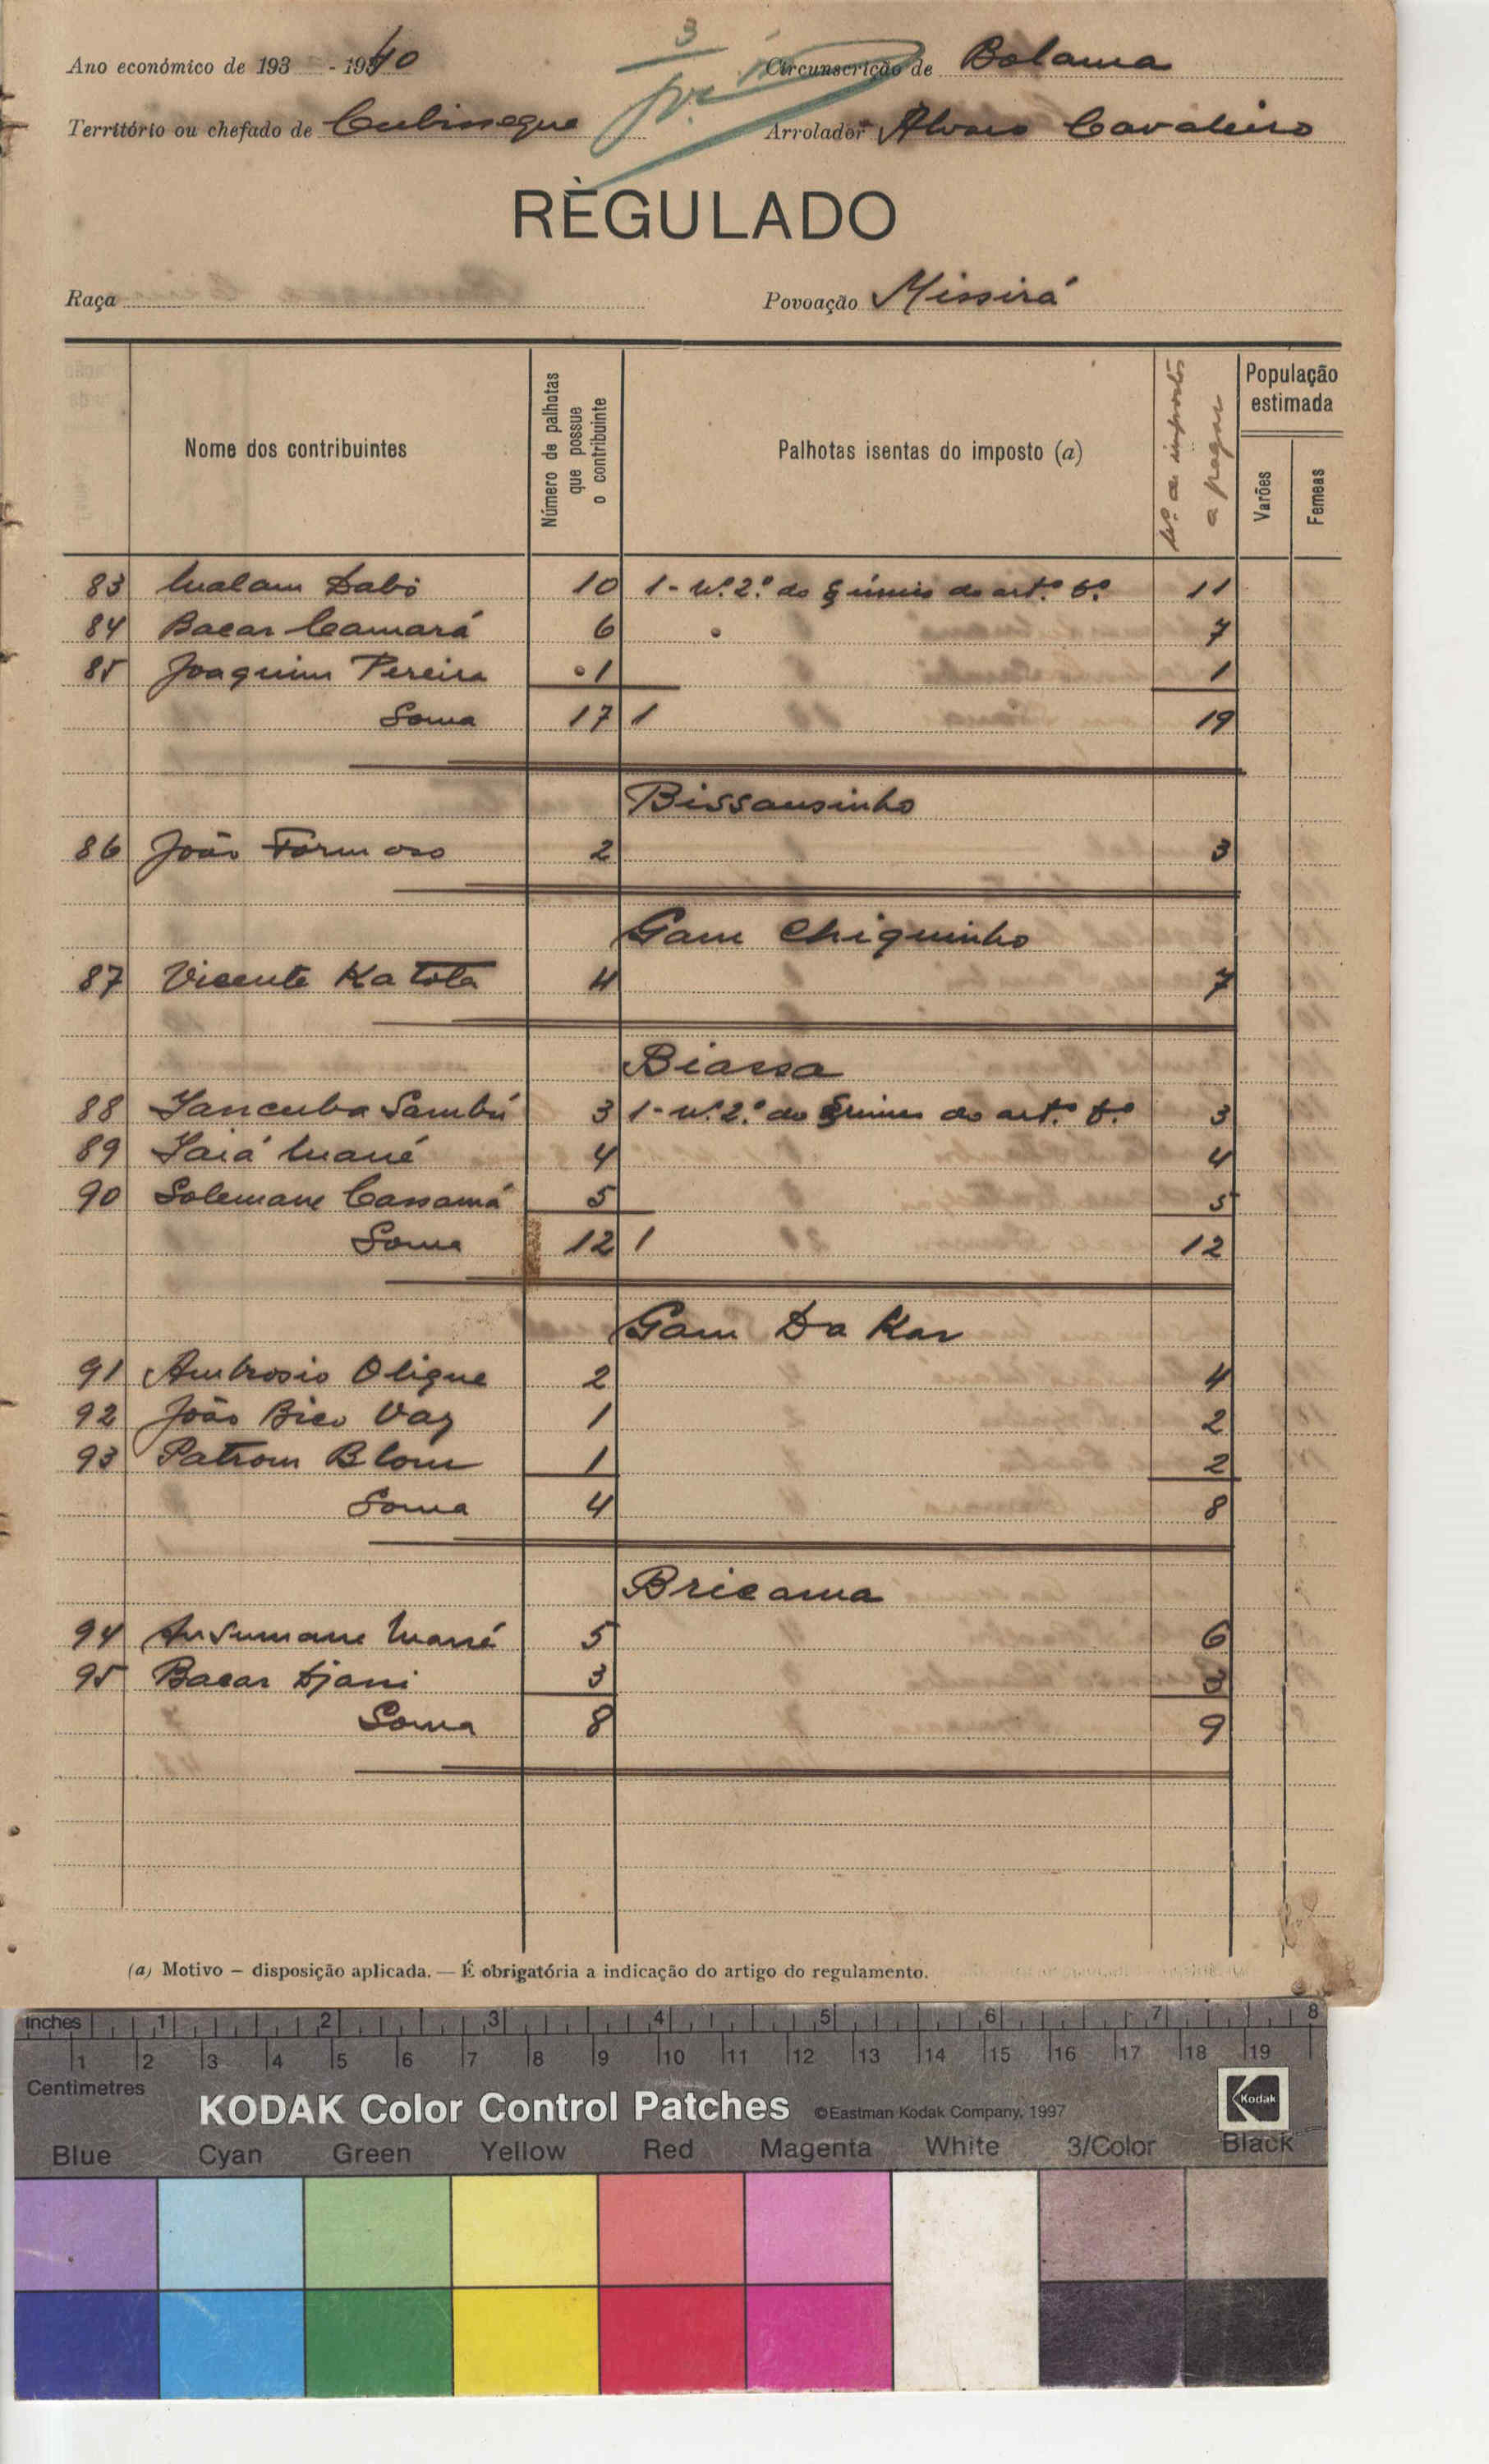 3
Ano económico de 193 - 1940 Circunscrição de Bolama
Território ou chefado de Cubisseque Arrolador Alvaro Cavaleiro
RÈGULADO
Raça Povoação Missirá
Nome dos contribuintes Número de palhotas que possue o contribuinte Palhotas isentas do imposto (a) Nº. de impostos a pagar População estimada Varões Femeas
83 Malam Dabó 10 1 - Nº. 2.º do § único do artº. 6.º 11
84 Bacar Camará 6 7
85 Joaquim Pereira 1 1
Soma 17 1 19
Bissausinho
86 João Formoso 2 3
Gam Chiquinho
87 Vicente Katota 4 7
Biassa
88 Iancuba Sambú 3 1 - Nº. 2.º do § único do artº. 6.º 3
89 Iaiá Mané 4 4
90 Solemane Cassamá 5 5
Soma 12 1 12
Gam Da Kar
91 Ambrosio Oligue 2 4
92 João Bico Vaz 1 2
93 Patrom Blom 1 2
Soma 4 8
Bricama
94 Ansumane Mané 5 6
95 Bacar Djani 3 3
Soma 8 9
(a) Motivo — disposição aplicada. — É obrigatória a indicação do artigo do regulamento.
inches 1 2 3 4 5 6 7 8
1 2 3 4 5 6 7 8 9 10 11 12 13 14 15 16 17 18 19
Centimetres
KODAK Color Control Patches ©Eastman Kodak Company, 1997 Kodak
Blue Cyan Green Yellow Red Magenta White 3/Color Black